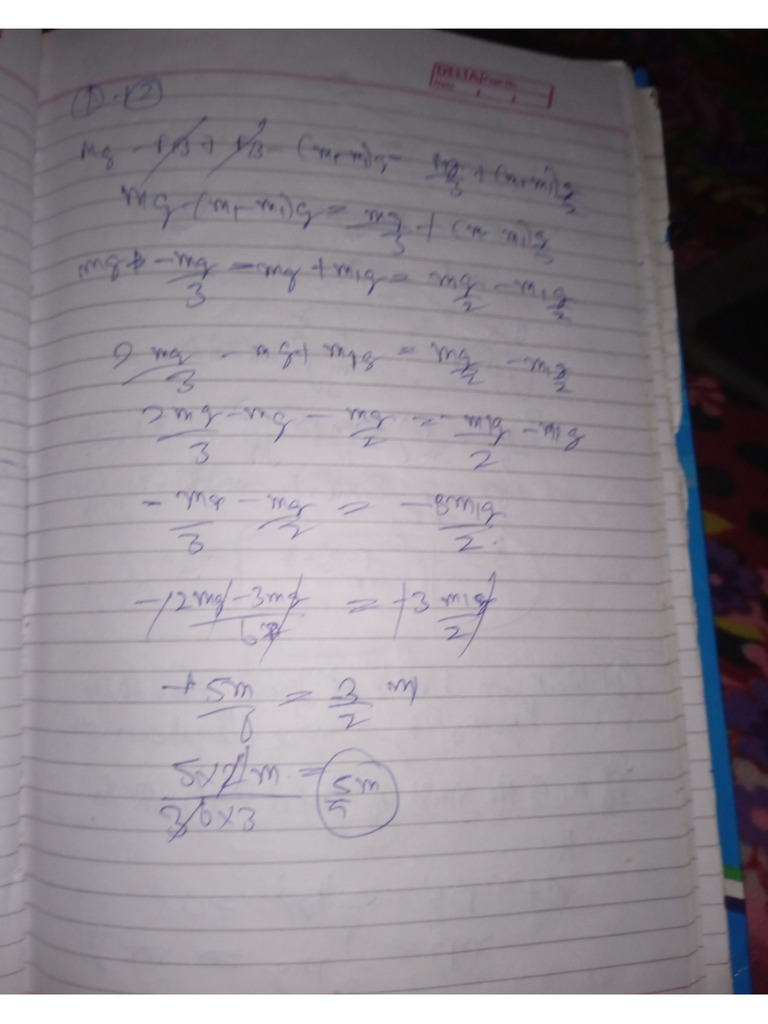 DELTA
① + ②
mg - FB + FB - (m - m1)g = mg/3 + (m - m1)g/2
mg - (m - m1)g = mg/3 + (m - m1)g/2
mg - mg/3 - mg + m1g = mg/2 - m1g/2
2mg/3 - mg + m1g = mg/2 - m1g/2
2mg/3 - mg - mg/2 = -m1g/2 - m1g
-mg/3 - mg/2 = -3m1g/2
-2mg - 3mg/6 = -3m1g/2
+5m/6 = 3/2 m1
5×2m/6×3 = 5m/9